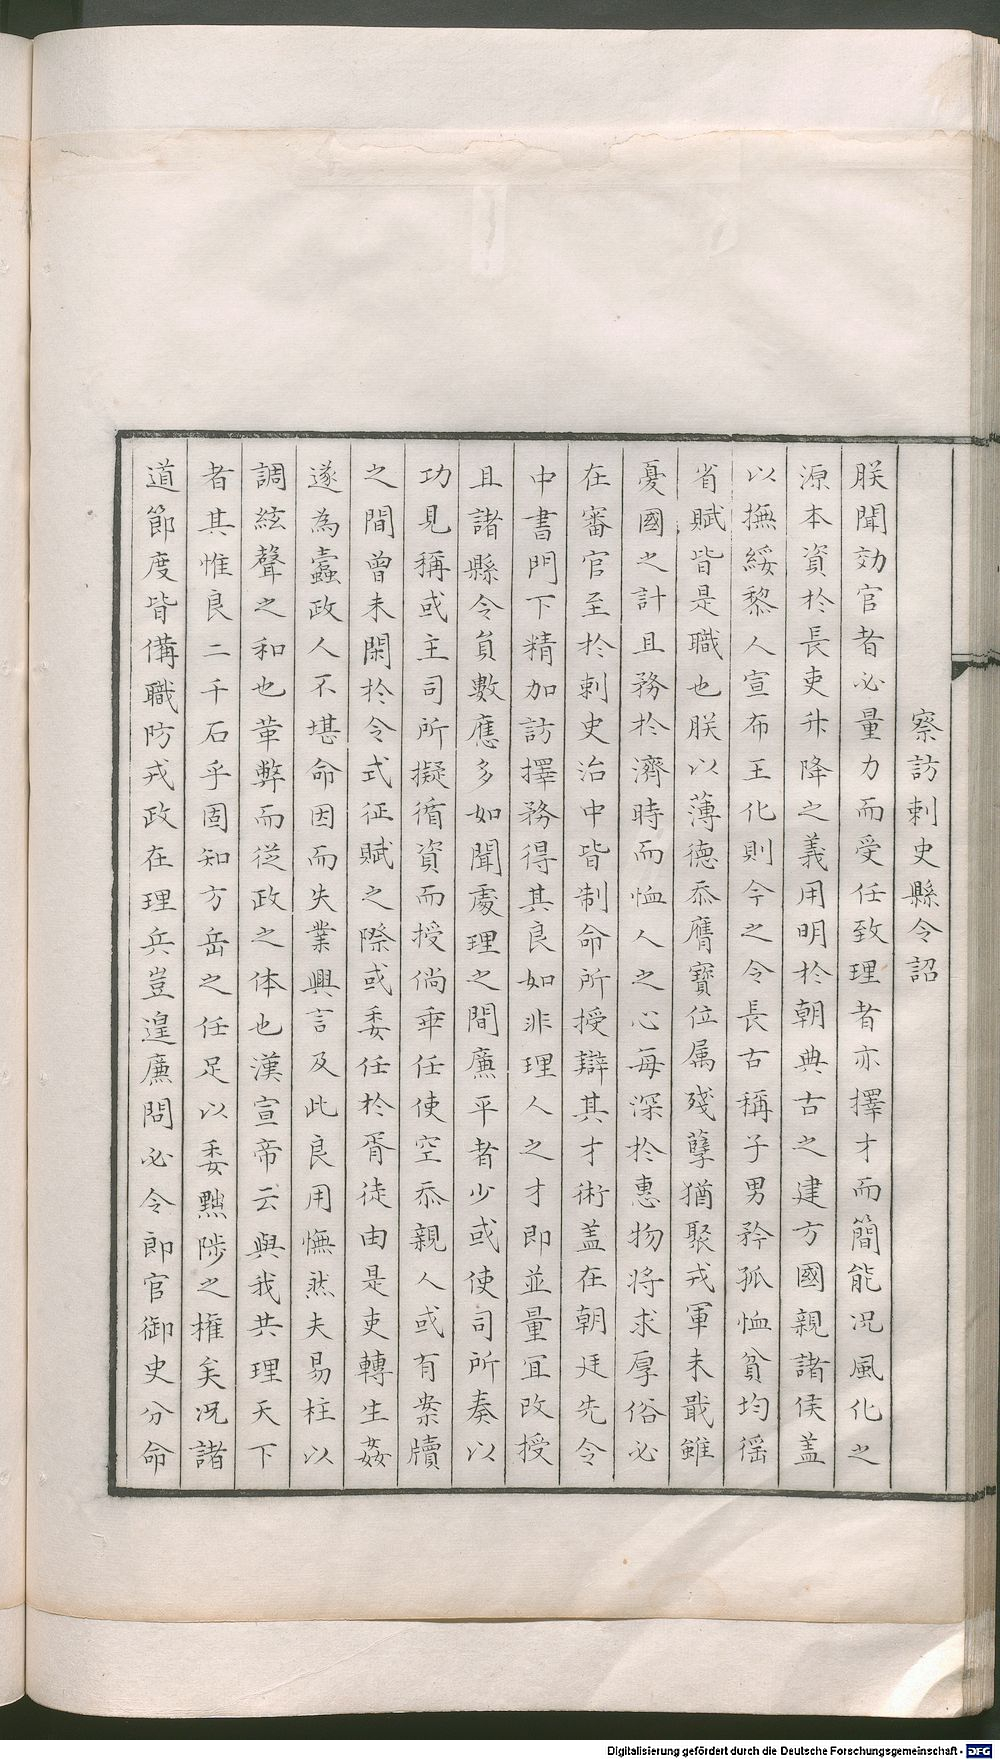 察訪刺史縣令詔
朕聞効官者必量力而受任致理者亦擇才而簡能况風化之
源本資於長吏升降之義用明於朝典古之建方國親諸侯蓋
以撫綏黎人宣布王化則今之令長古稱子男矜孤恤貧均徭
省賦皆是職也朕以薄德忝膺寶位属殘孽猶聚戎軍未戢雖
憂國之計且務於濟時而恤人之心每深於惠物将求厚俗必
在審官至於刺史治中皆制命所授辯其才術蓋在朝廷先令
中書門下精加訪擇務得其良如非理人之才即並量冝改授
且諸縣令員數應多如聞處理之間廉平者少或使司所奏以
功見稱或主司所擬循資而授倘乖任使空忝親人或有案牘
之間曾未閑於令式征賦之際或委任於胥徒由是吏轉生姦
遂為蠹政人不堪命因而失業興言及此良用憮然夫易柱以
調絃聲之和也革弊而従政之体也漢宣帝云與我共理天下
者其惟良二千石乎固知方岳之任足以委黜陟之權矣况諸
道節度皆俻職防戎政在理兵豈遑廉問必令郎官御史分命
Digitalisierung gefördert durch die Deutsche Forschungsgemeinschaft - DFG